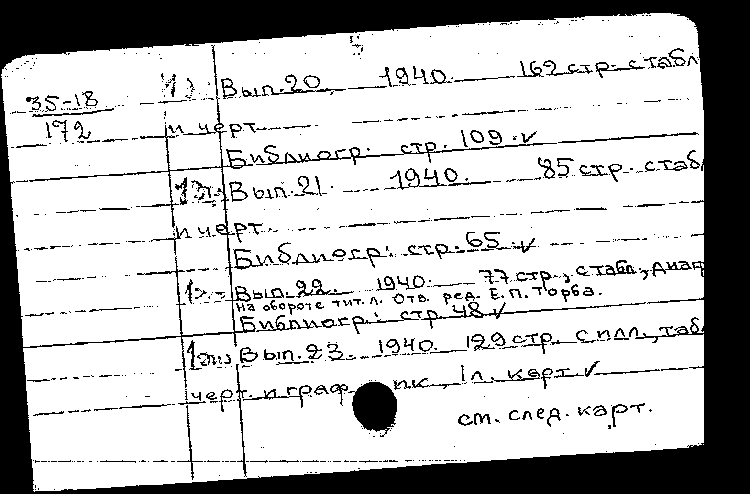 5
35-18
172
1) Вып. 20. 1940. 162 стр. с табл
и черт.
Библиогр. стр. 109.✓
Вып. 21. 1940. 85 стр. с табл
и черт.
Библиогр: стр. 65 ✓
Вып. 22. 1940. 77 стр., с табл., диаг
На обороте тит. л. Отв. ред. Е. П. Торба.
Библиогр.: стр. 48 ✓
Вып. 23. 1940. 129 стр. с илл., таб
черт. и граф. пк., 1 л. карт. ✓
см. след. карт.